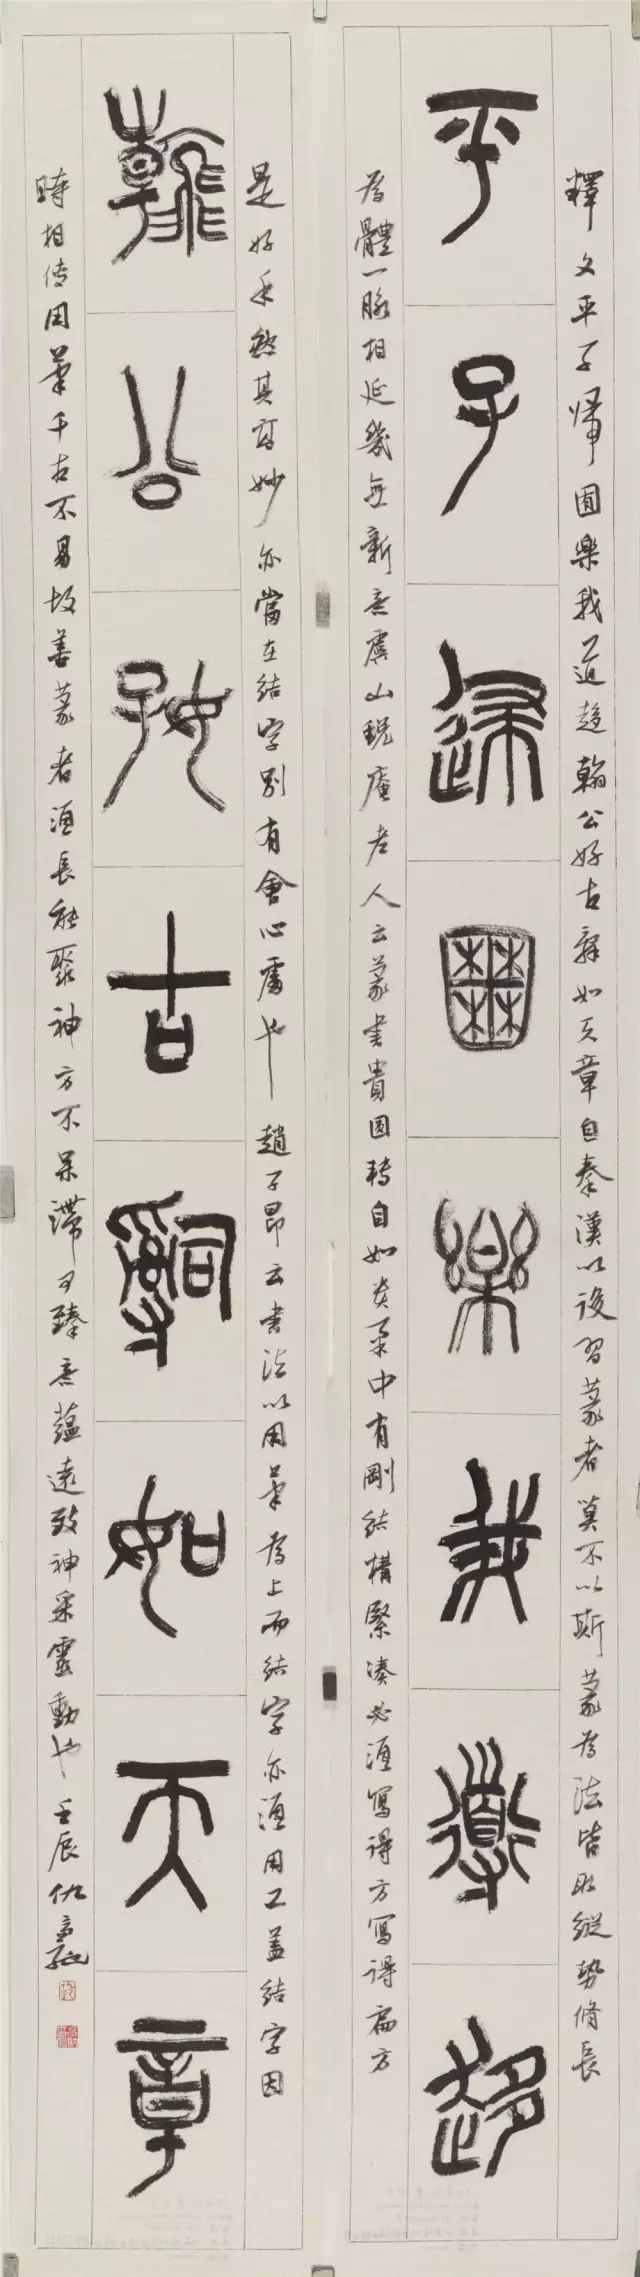 釋文平子歸囿樂我道趍翰公好古辭如天章自秦漢以後習篆者莫不以斯篆為法皆取縱勢脩長
平子歸囿樂我道趍
為體一脉相延幾無新意虞山蜕庵老人云篆書貴圆轉自如於柔中有剛結構緊湊必須寫得方寫得扁方
是好手然其高妙亦當在結字別有會心處也趙子昂云書法以用筆為上而結字亦須用工蓋結字因
翰公好古辭如天章
時相傳用筆千古不易故善篆者須長能聚神方不呆滯可臻意蘊遠致神采靈動也壬辰仇高馳